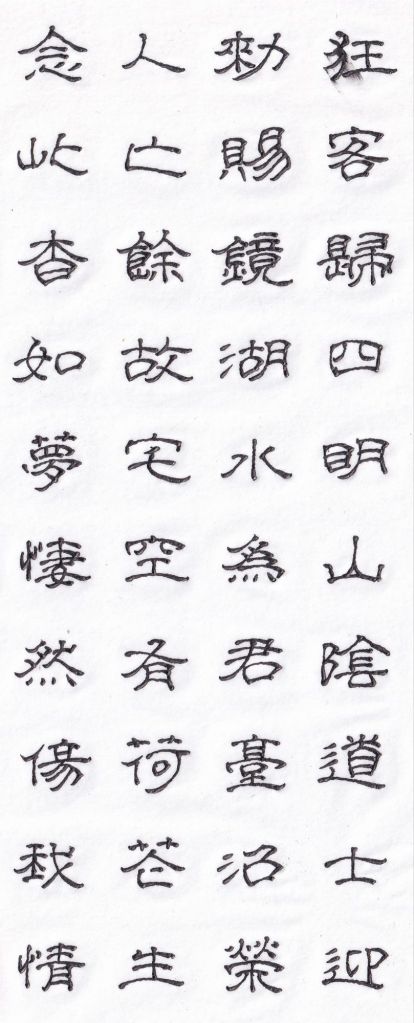 狂客歸四明山陰道士迎
勑賜鏡湖水為君臺沼榮
人亡餘故宅空有荷花生
念此杳如夢悽然傷我情